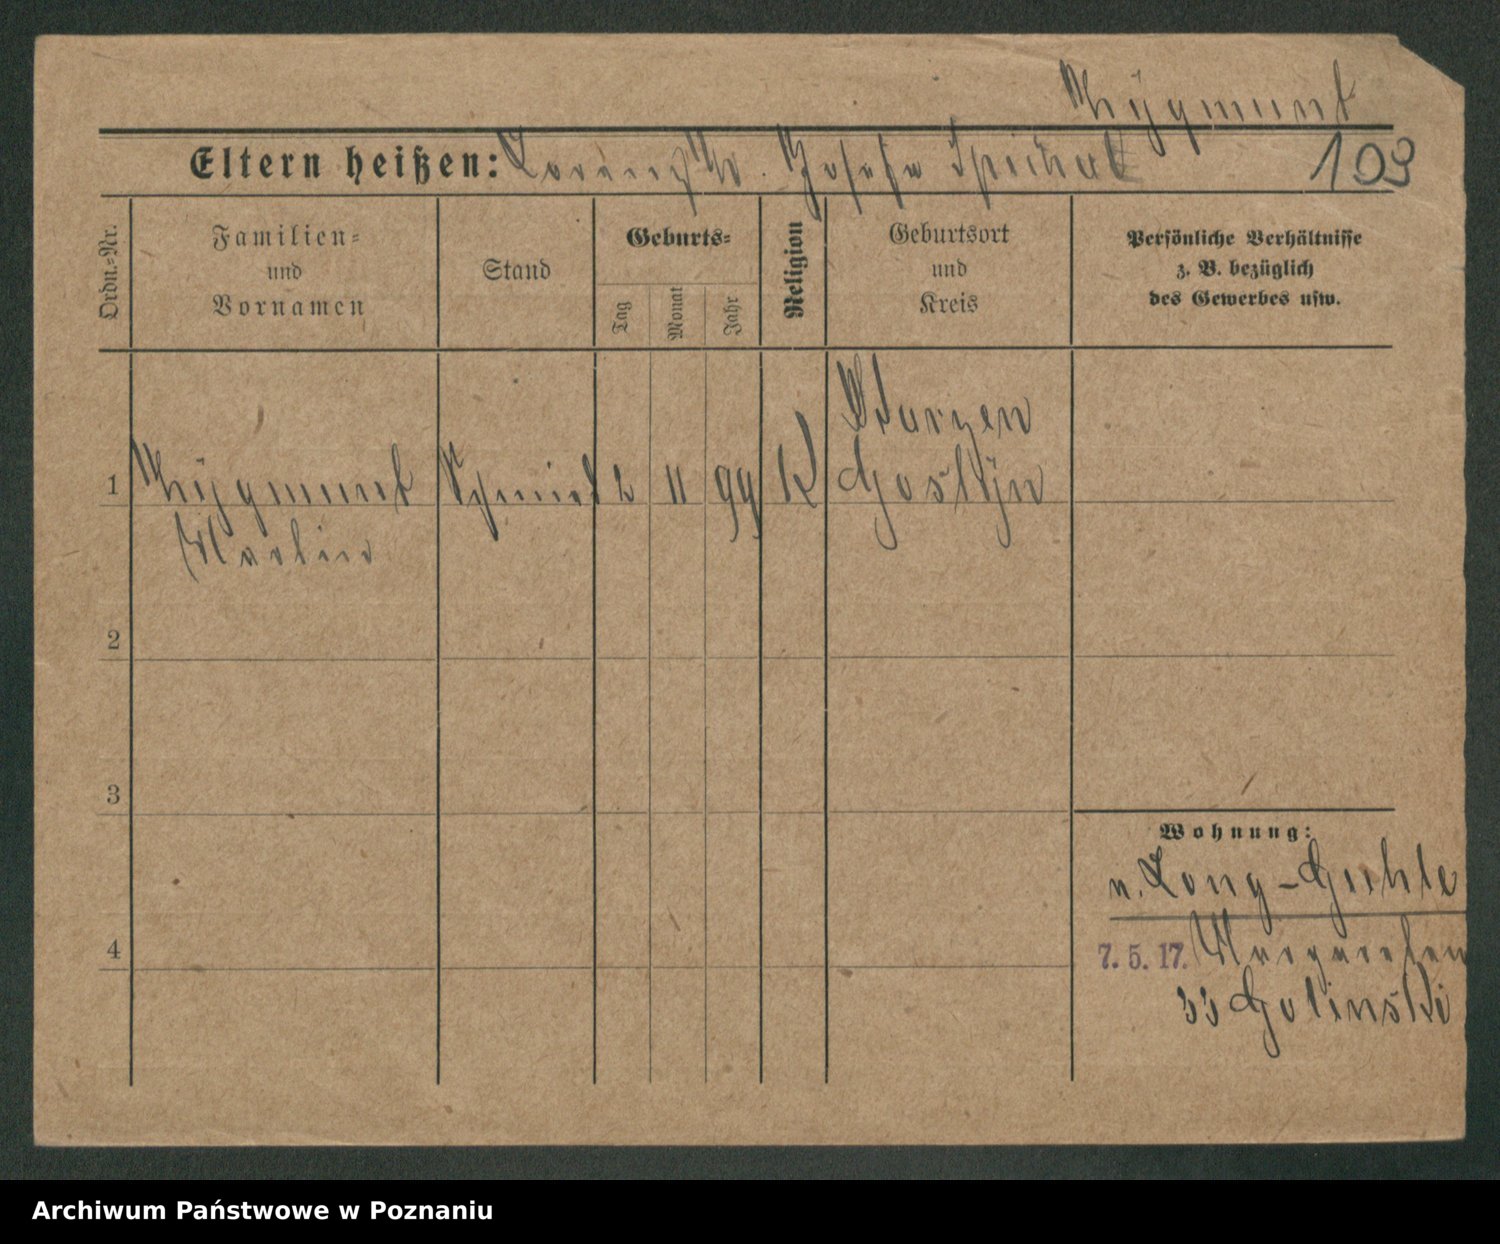 Zÿgmunt
Eltern heißen: Lorenz u. Josefa Spichal
103
Ordn.-Nr.
Familien-
und
Vornamen
Stand
Geburts-
Tag
Monat
Jahr
Religion
Geburtsort
und
Kreis
Persönliche Verhältnisse
z. B. bezüglich
des Gewerbes usw.
1
Zÿgmunt
Martin
Schmied
2
11
99
K
Gostÿn
2
3
4
Wohnung:
n. Long-Guhle
7. 5. 17. Margareten
33 Golinski
Archiwum Państwowe w Poznaniu